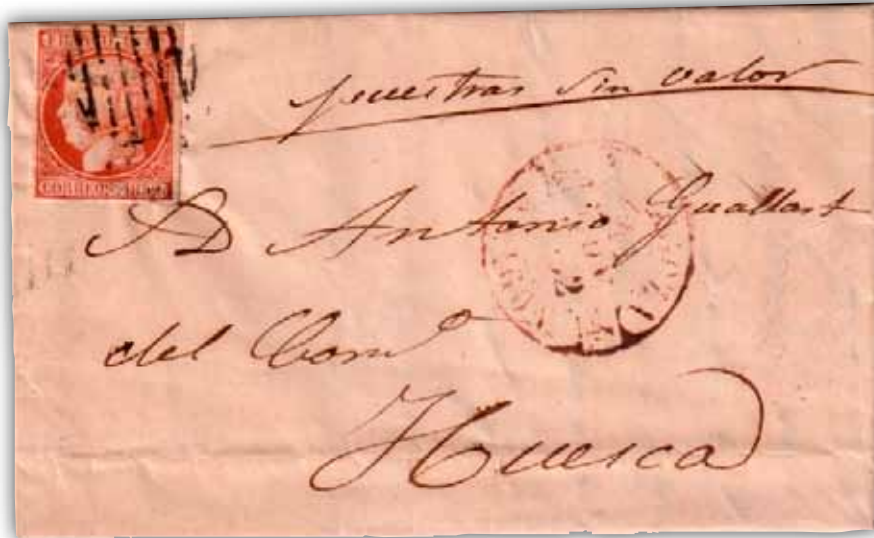 CORREOS
muestras sin valor
D Antonio Guallart
del Comº
Huesca